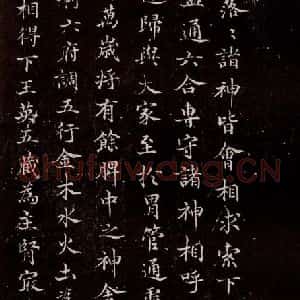 落〻諸神皆會相求索下
通六合專守諸神相呼
歸與大家至於胃管通
萬歲將有餘脾中之神舍
六府調五行金木水火土
相得下王英五藏為主腎㝡
shufawang.CN